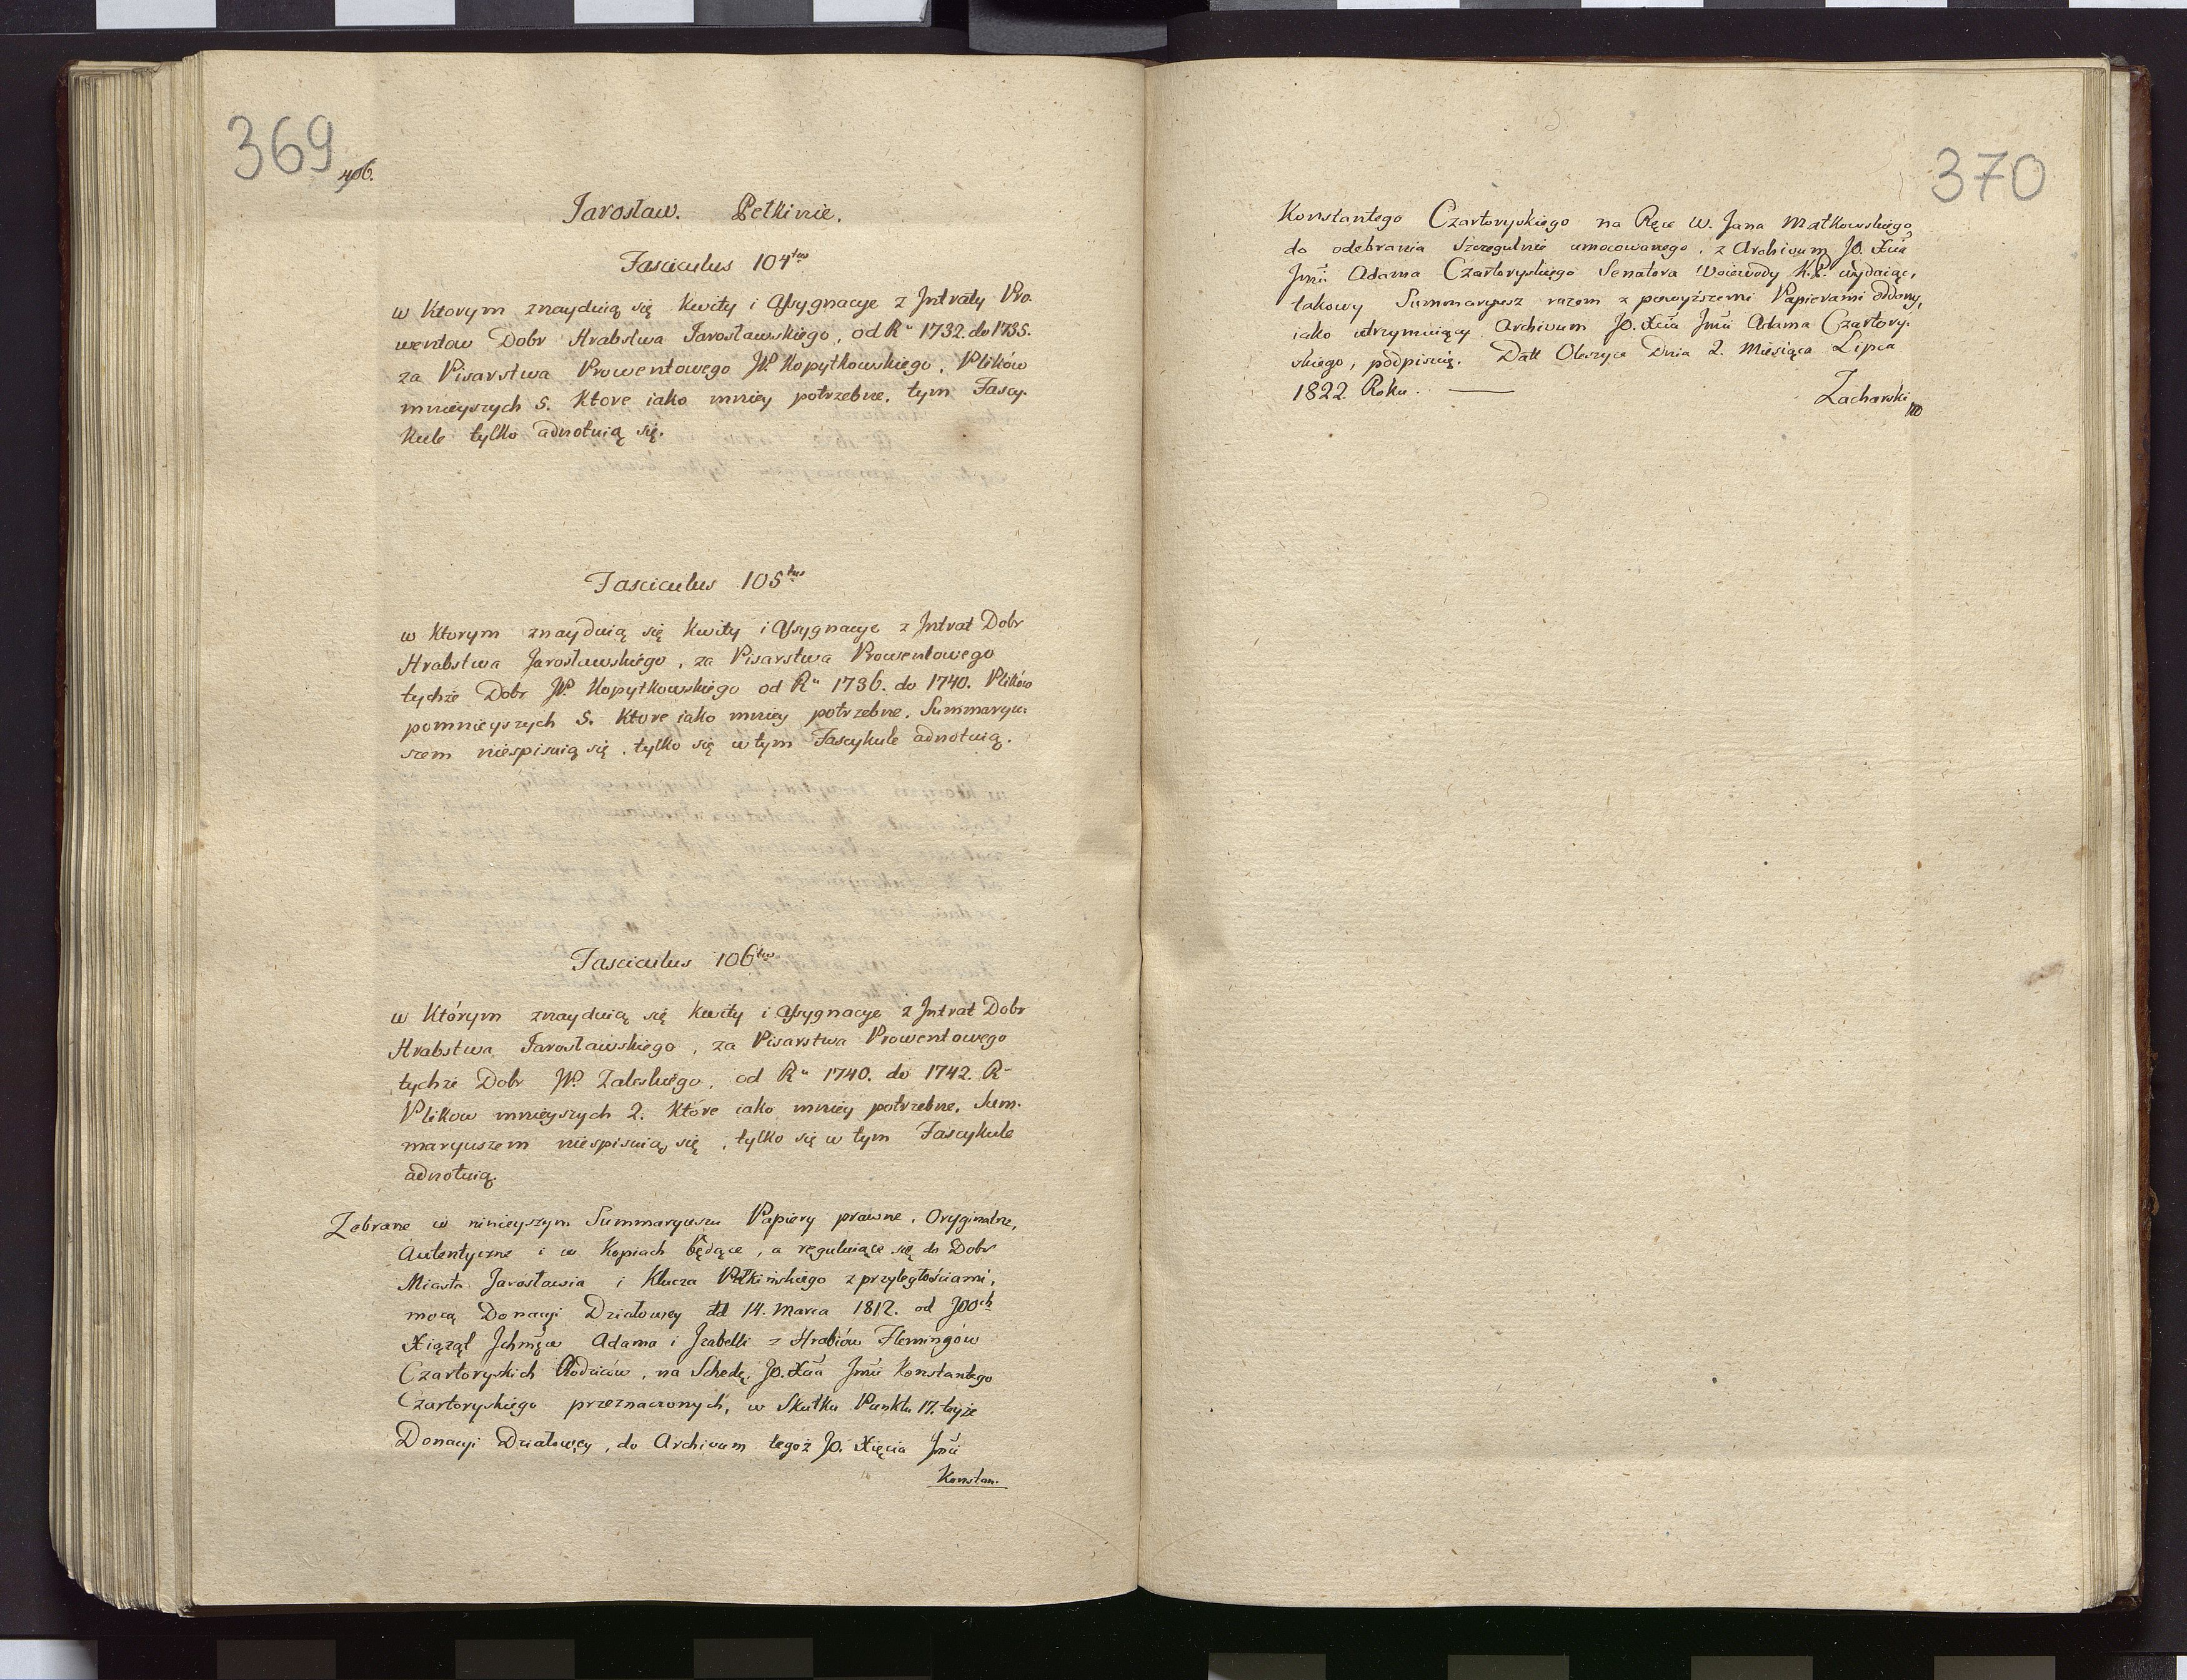 369
406.
Jarosław. Pełkinie.
Fasciculus 104tus
w Ktorym znayduią się Kwity i Assygnacye z Jntraty Pro-
wentow Dobr Hrabstwa Jarosławskiego, od Ru 1732. do 1735.
za Pisarstwa Prowentowego JP. Kopytkowskiego. Plików
mnieyszych 5. Ktore iako mniey potrzebne, tym Fascy-
kule tylko adnotuią się.
Fasciculus 105tus
w Ktorym znayduią się Kwity i Assygnacye z Jntrat Dobr
Hrabstwa Jarosławskiego, za Pisarstwa Prowentowego
tychże Dobr JP. Kopytkowskiego od Ru 1736. do 1740. Plików
pomnieyszych 5. Ktore iako mniey potrzebne, Summaryu-
szem niespisuią się, tylko się w tym Fascykule adnotuią.
Fasciculus 106tus
w Którym znayduią się Kwity i Assygnacye z Jntrat Dobr
Hrabstwa Jarosławskiego, za Pisarstwa Prowentowego
tychże Dobr JP. Zaleskiego, od Ru 1740. do 1742. R
Plikow mnieyszych 2. Które iako mniey potrzebne, Sum-
maryuszem niespisuią się, tylko się w tym Fascykule
adnotuią.
Zebrane w ninieyszym Summaryuszu Papiery prawne, Oryginalne,
Autentyczne i w Kopiach będące, a reguluiące się do Dobr
Miasta Jarosławia i Klucza Pełkińskiego z przyległościami,
mocą Donacyi Działowey dd 14. Marca 1812. od JOOch
Xiążąt Jchmców Adama i Jzabelli z Hrabiów Flemingów
Czartoryskich Rodziców, na Schedę JO. Xcia Jmci Konstantego
Czartoryskiego przeznaczonych, w Skutku Punktu 17. teyże
Donacyi Działowey, do Archivum tegoż JO. Xięcia Jmci
Konstan-
370
Konstantego Czartoryskiego na Ręce W. Jana Małkowskiego,
do odebrania Szczegulnie umocowanego, z Archivum JO. Xcia
Jmci Adama Czartoryskiego Senatora Woiewody K.P. wydaiąc,
takowy Summaryusz razem z powyższemi Papierami oddany,
iako utrzymuiący Archivum JO. Xcia Jmci Adama Czartory-
skiego, podpisuię. Datt Oleszyce Dnia 2. Miesiąca Lipca
1822 Roku.
Zacharski